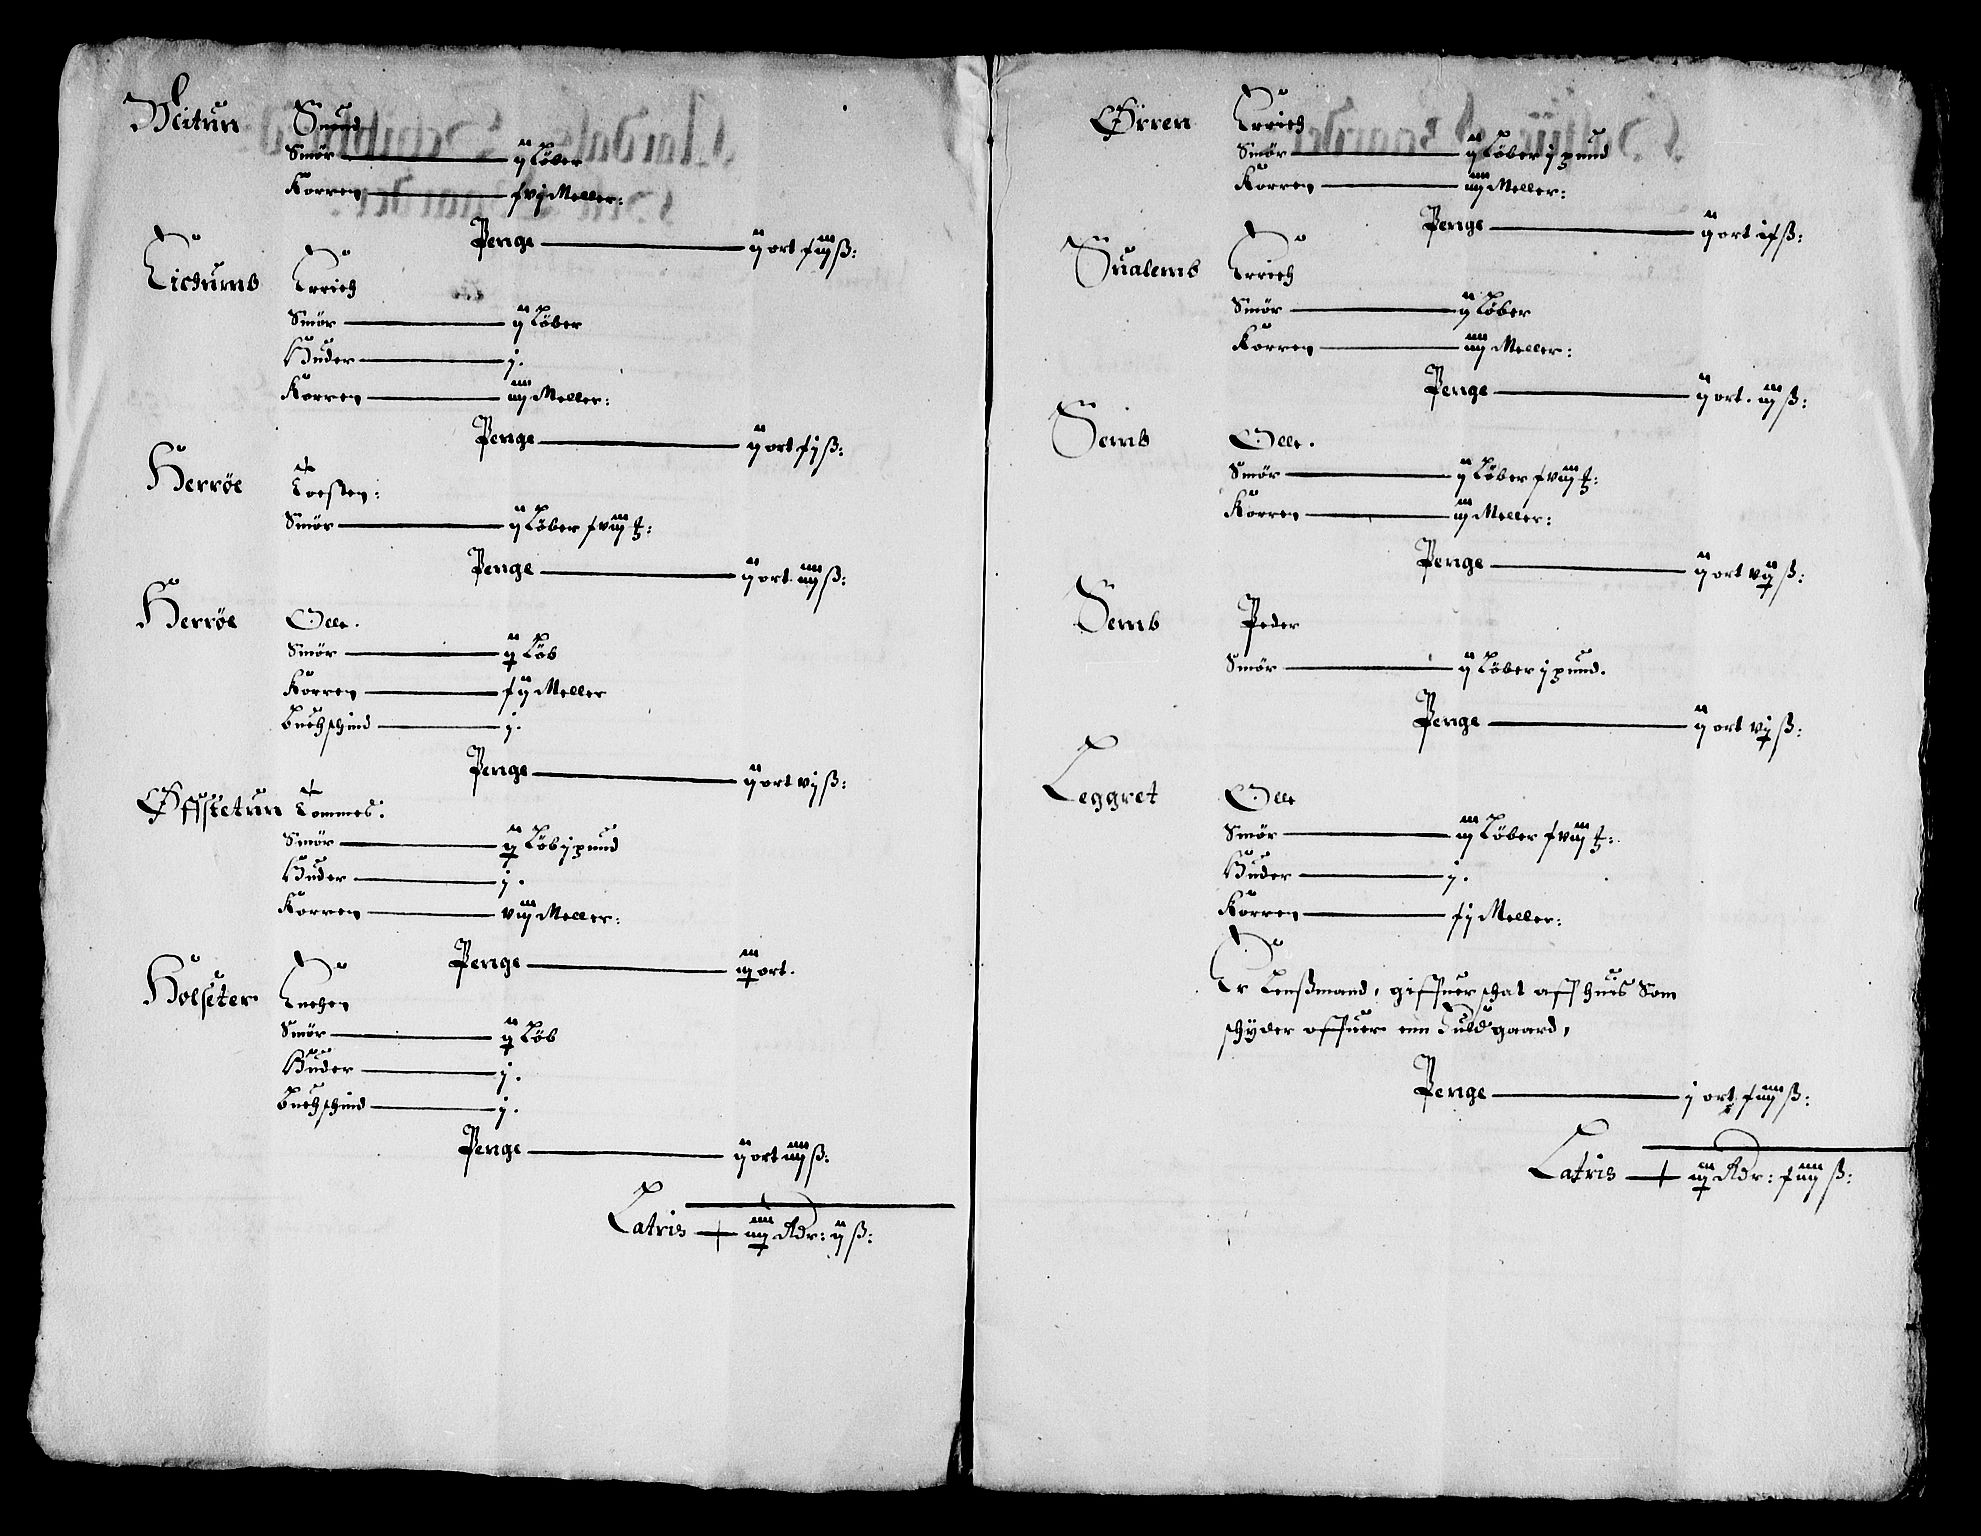 Veitun Suend
Smör — ij Löber
Korren — xvj Meller:
Penge — ij ort xiij ß:
Lictumb Errich
Smör — ij Löber
Huder — j.
Korren — iiij Meller:
Penge — ij ort xj ß:
Herröe Torsten:
Smör — ij Löber xviij ℔:
Penge — ij ort. iiij ß:
Herröe Olle.
Smör — ij Löb
Korren — xij Meller
Buchschind — j.
Penge — ij ort vj ß:
Øffstetun Tommes:
Smör — ij Löb j pund
Huder — j.
Korren — viij Meller:
Penge — iij ort.
Holseter Enchen
Smör — ij Löb
Huder — j.
Buchschind — j.
Penge — ij ort iiij ß:
Latris — iiij Rdr: ij ß:
Örren Errich
Smör — ij Löber j pund
Korren — iiij Meller:
Penge — ij ort ix ß:
Sualemb Errich
Smör — ij Löber
Korren — iiij Meller:
Penge — ij ort. iij ß:
Semb Olle.
Smör — ij Löber xviij ℔:
Korren — iij Meller:
Penge — ij ort vij ß:
Semb Peder
Smör — ij Löber j pund.
Penge — ij ort vj ß:
Leggret Olle
Smör — iij Löber xviij ℔:
Huder — j.
Korren — xj Meller:
Er Lensmand, giffuer schat aff huis Som
schyder offuer enn Fuld gaard,
Penge — j ort xiiij ß:
Latris — iij Rdr: xiiij ß: